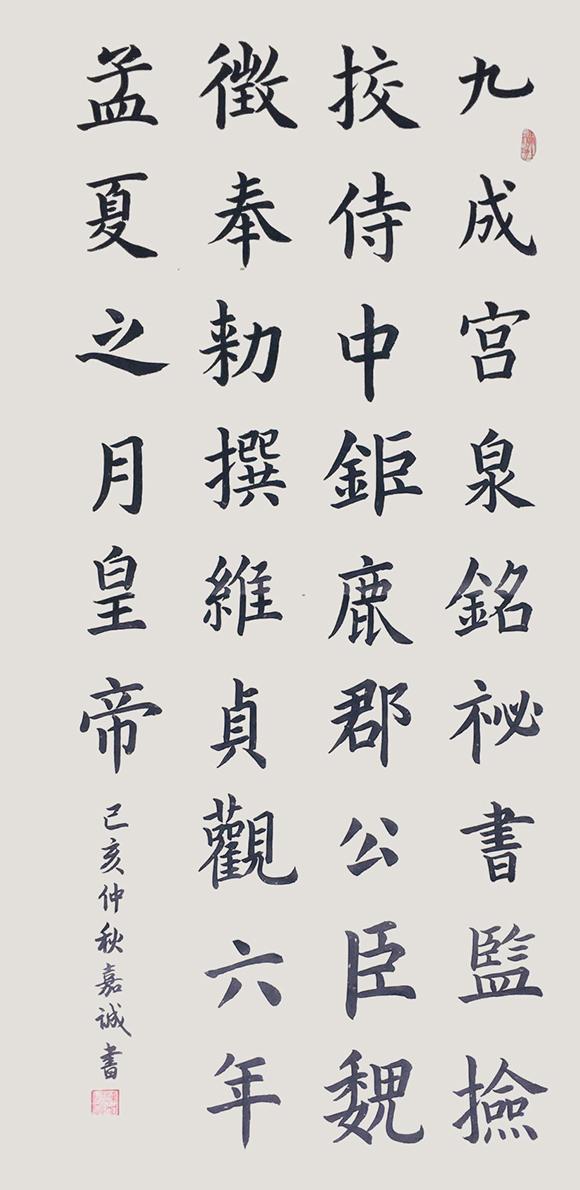 九成宮泉銘祕書監撿
挍侍中鉅鹿郡公臣魏
徵奉勑撰維貞觀六年
孟夏之月皇帝
己亥仲秋嘉誠書